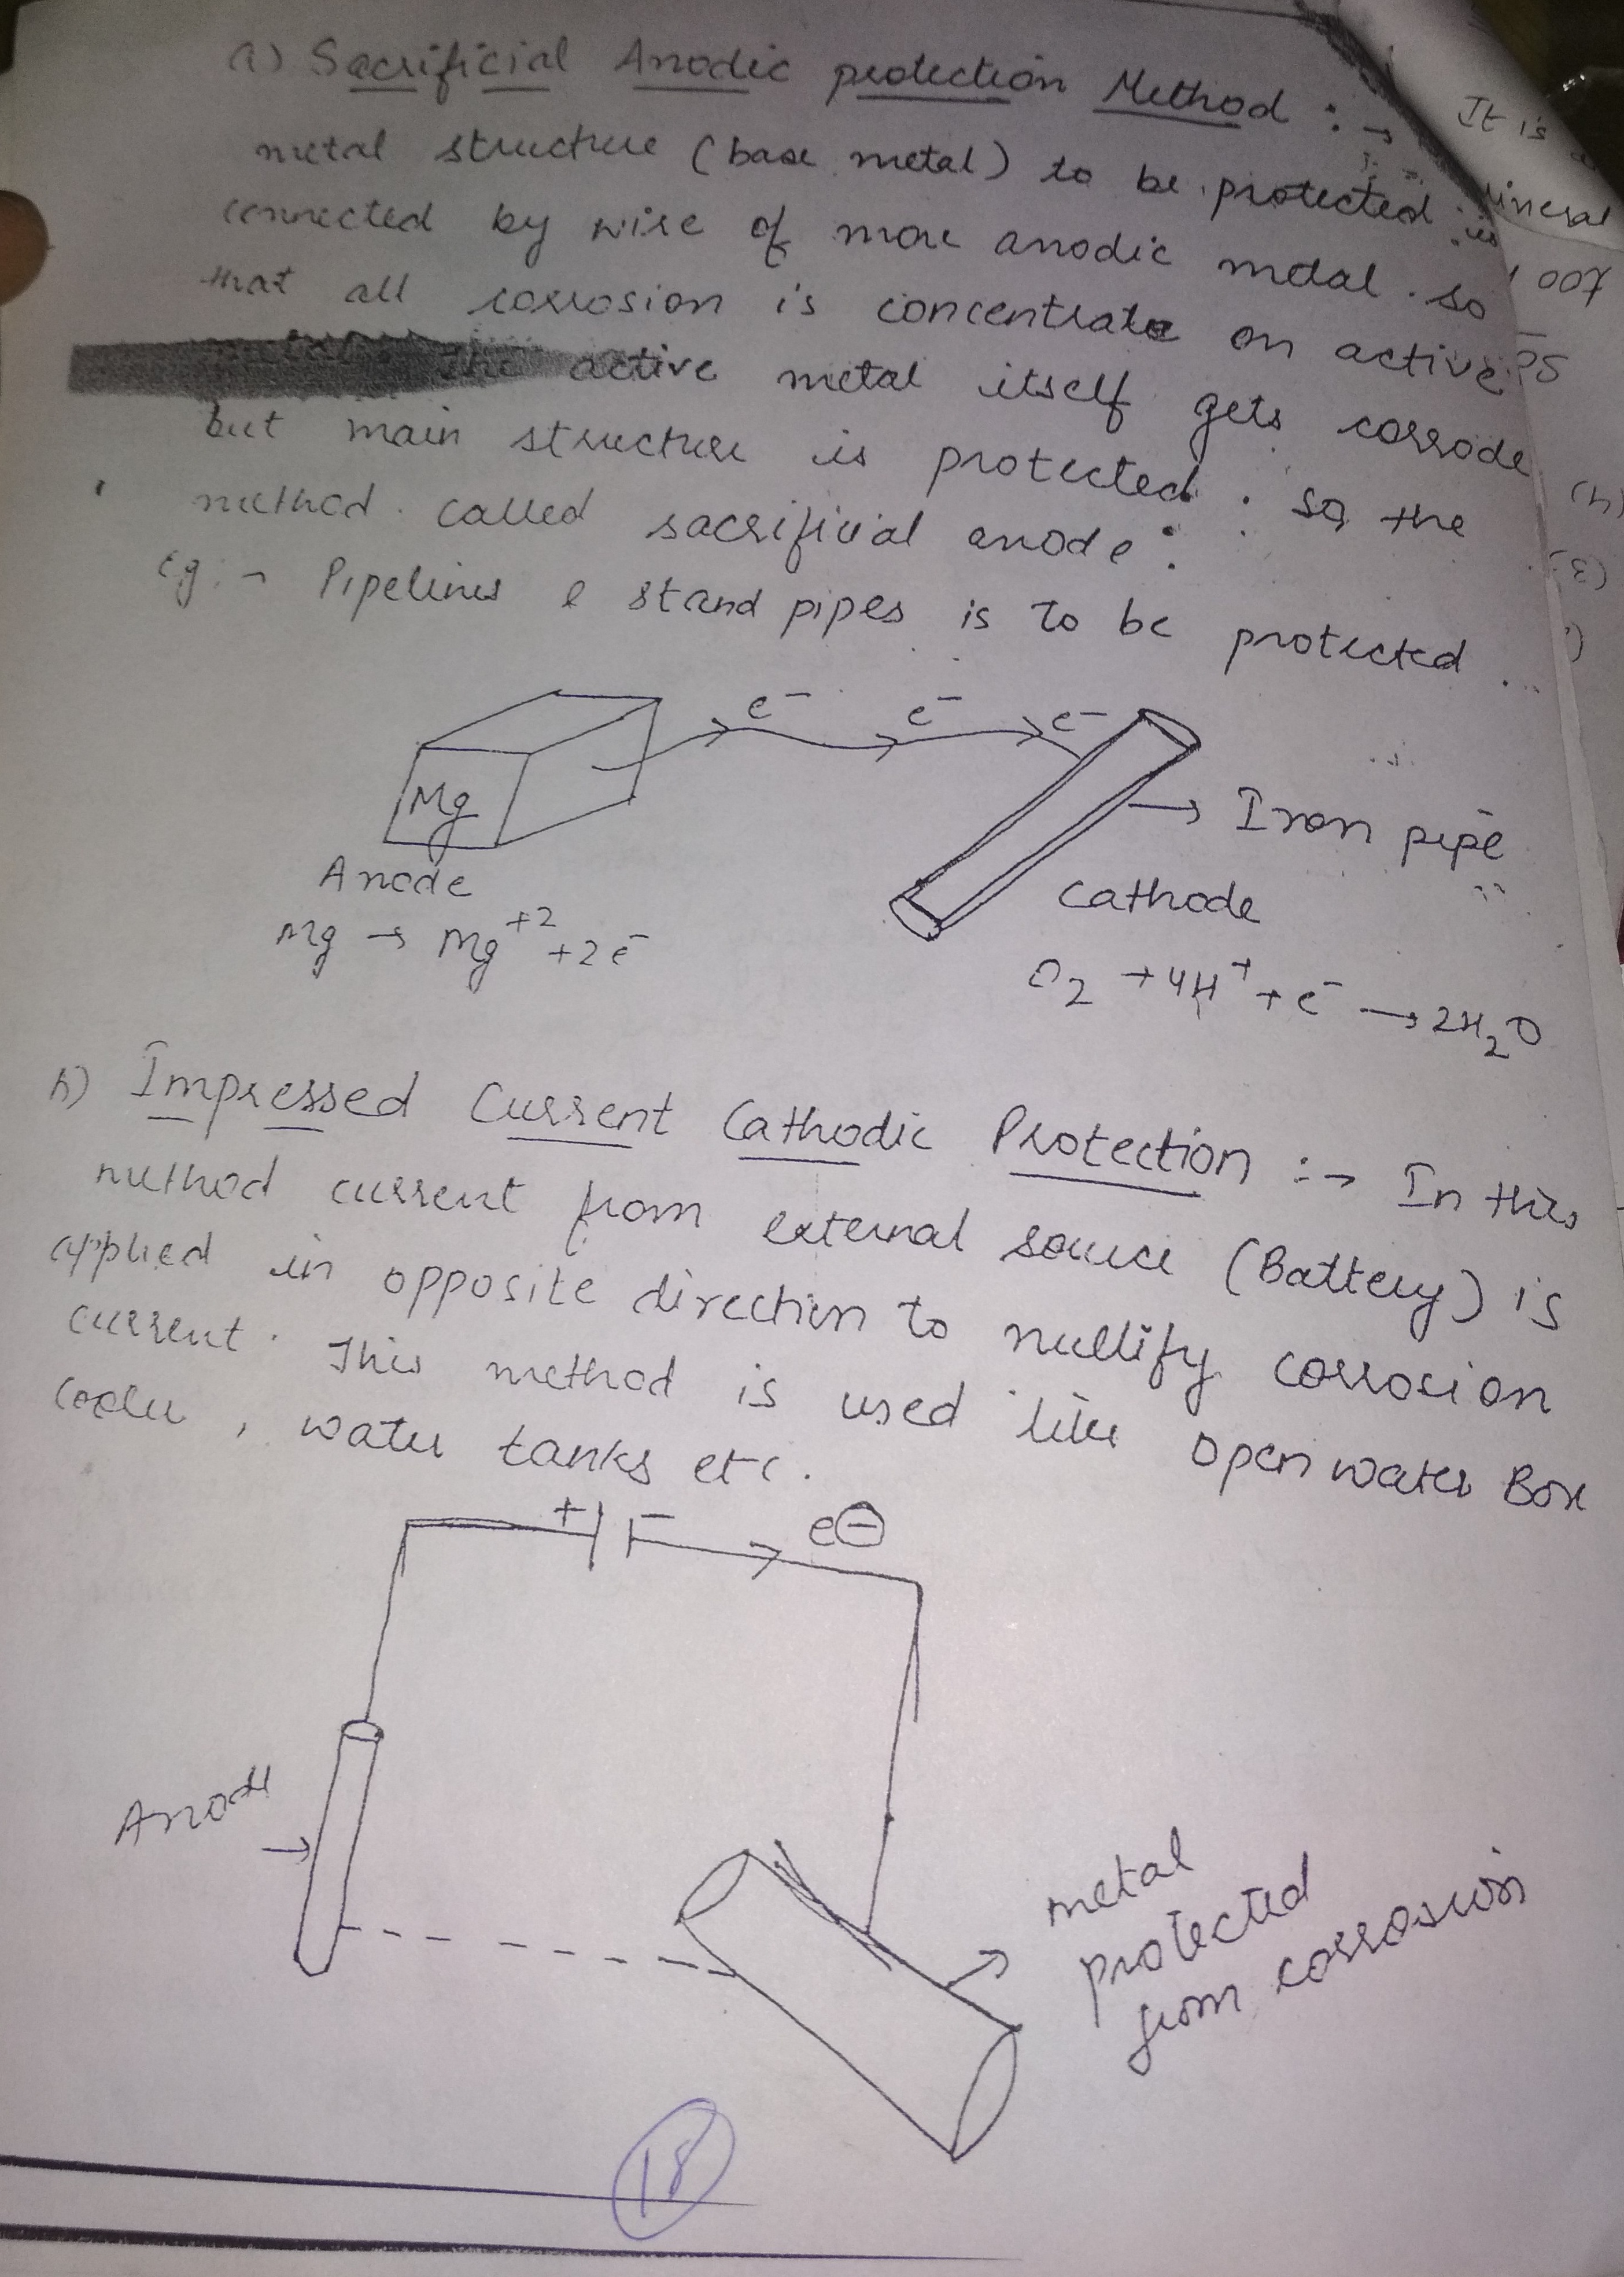 a) Sacrificial Anodic protection Method :→
metal structure (base metal) to be protected is
connected by wire of more anodic metal. so
that all corrosion is concentrate on active
The active metal itself gets corrode
but main structure is protected. So, the
method called sacrificial anode.
eg. → Pipelines & stand pipes is to be protected
e⁻ e⁻ e⁻
Mg
→ Iron pipe
Anode
Cathode
Mg → Mg⁺² + 2e⁻
O₂ + 4H⁺ + e⁻ → 2H₂O
b) Impressed Current Cathodic Protection :→ In this
method current from external source (Battery) is
applied in opposite direction to nullify corrosion
current. This method is used like open water Box
cooler, water tanks etc.
+ − e⊖
Anode
metal
protected
from corrosion
18
It is
007
(4)
(3)